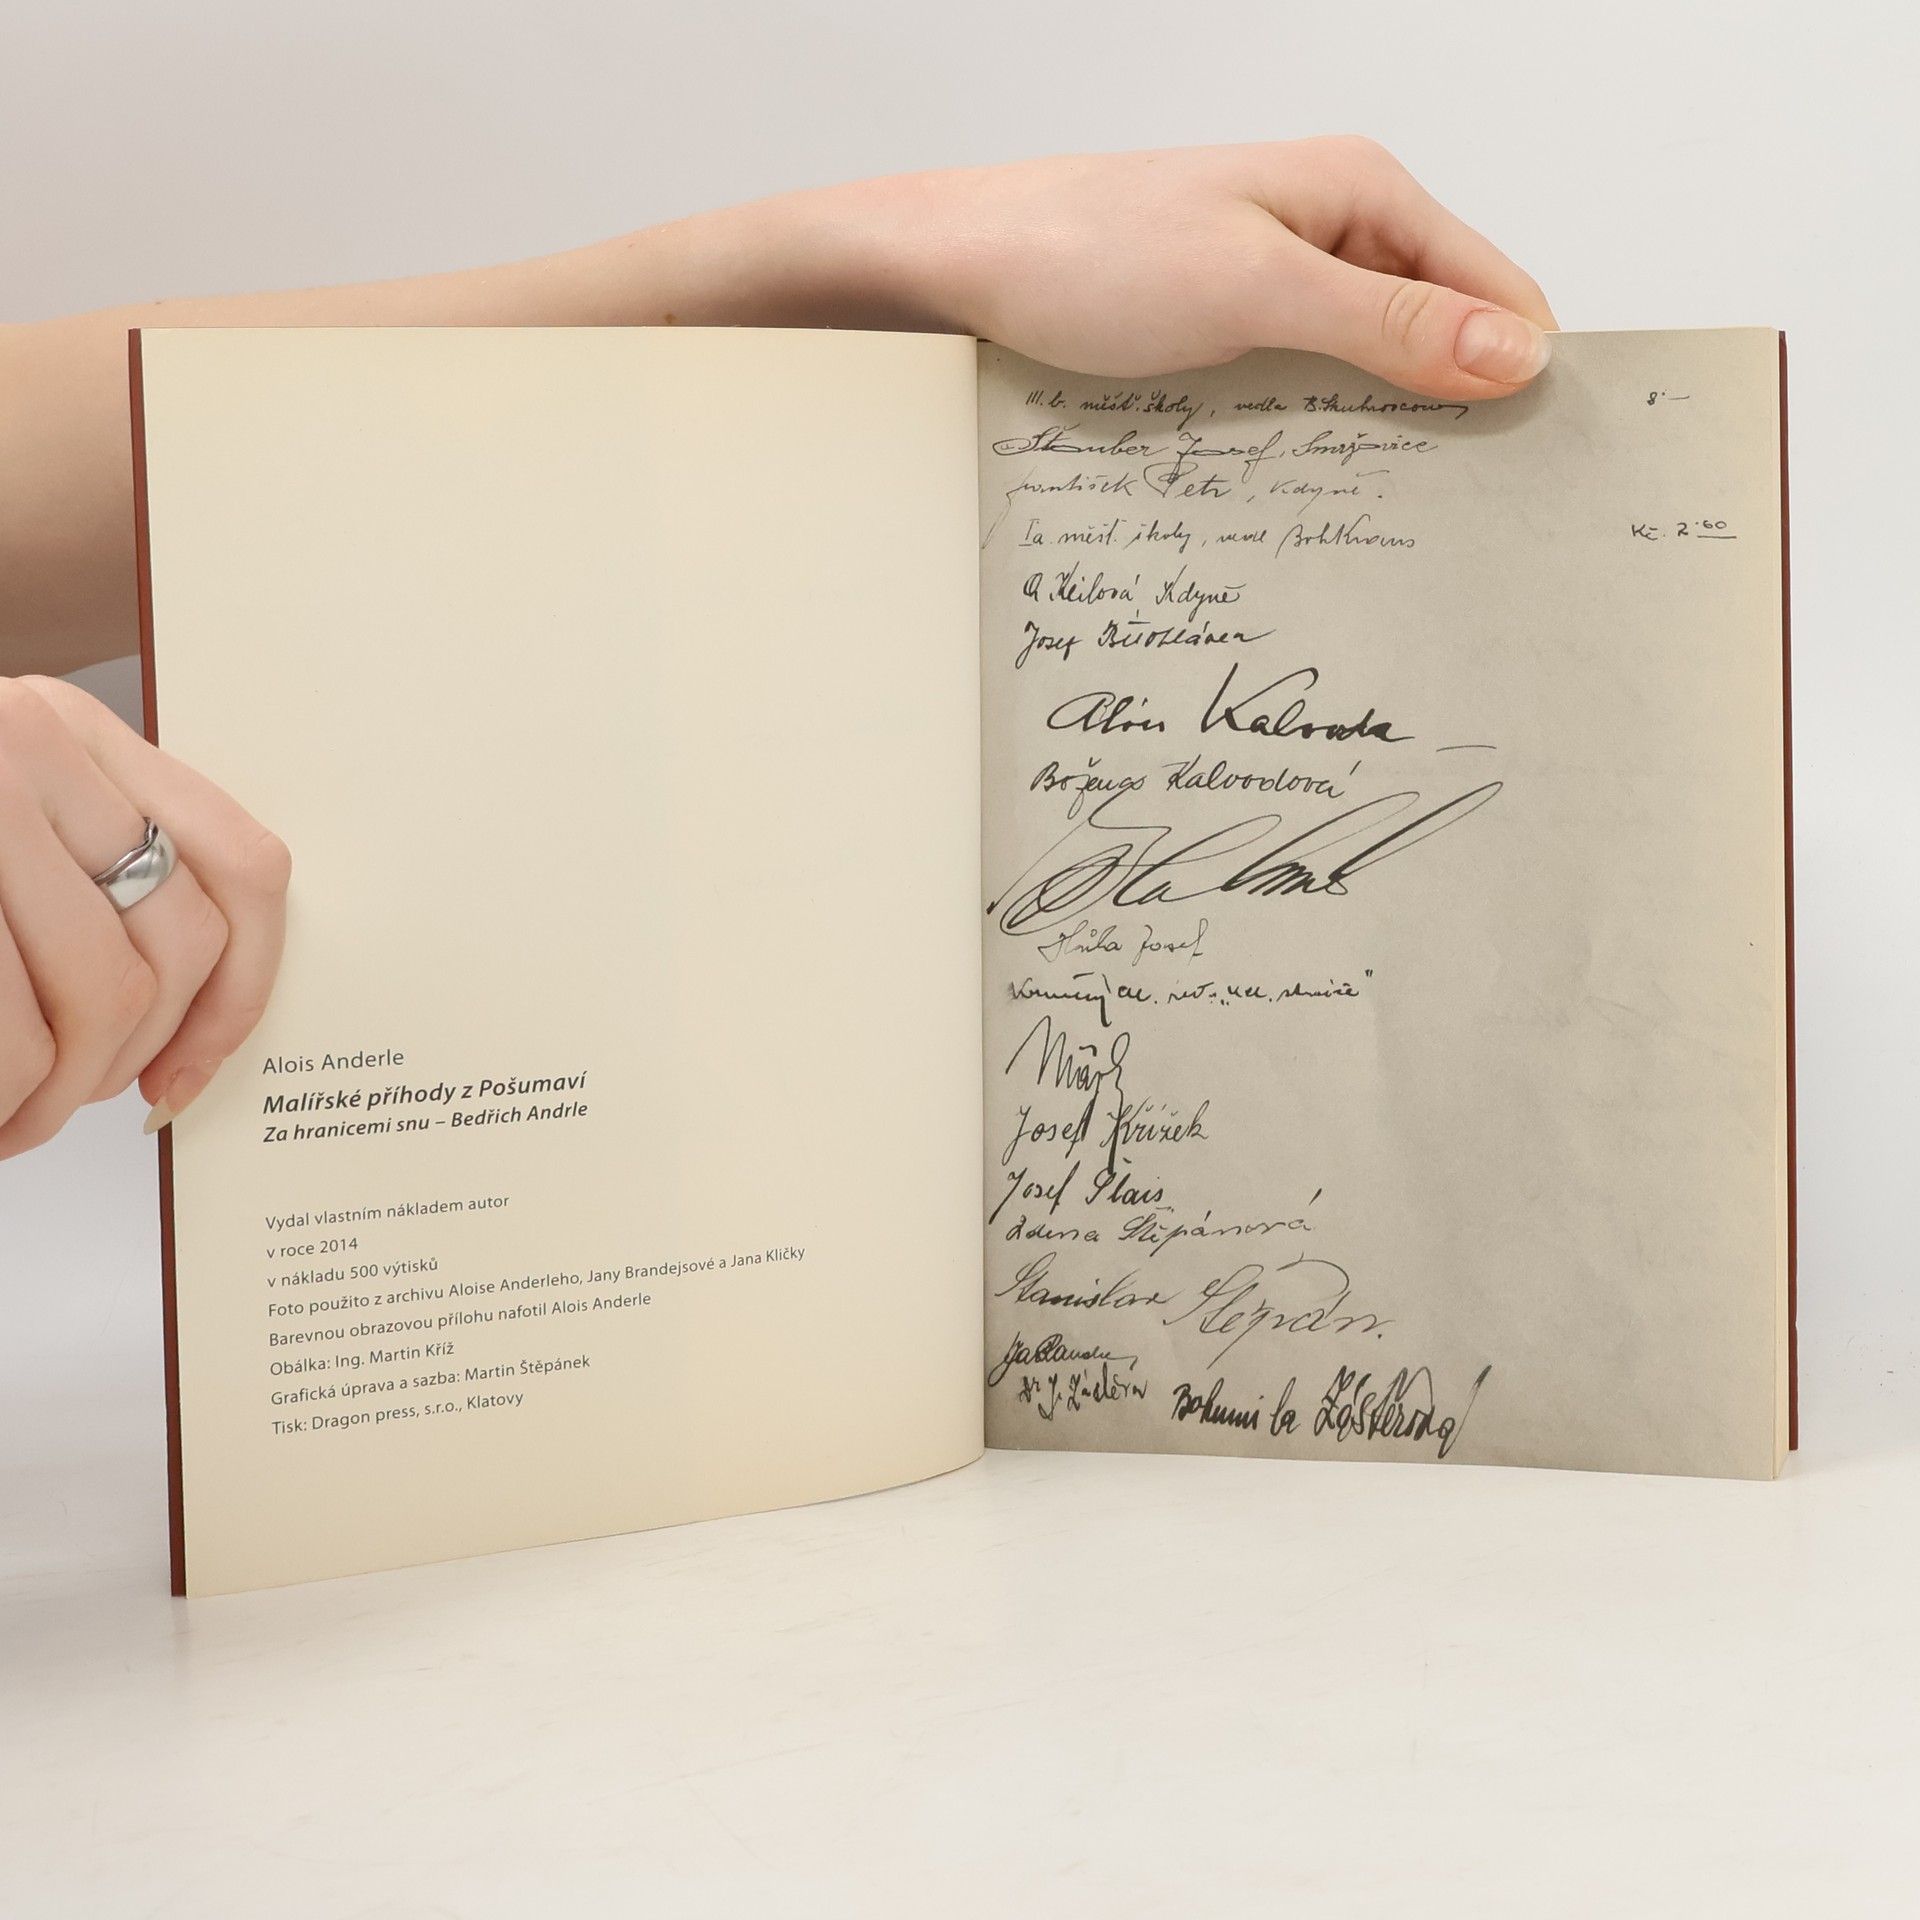 Alois Anderle
Malířské příhody z Pošumaví
Za hranicemi snu – Bedřich Andrle
Vydal vlastním nákladem autor
v roce 2014
v nákladu 500 výtisků
Foto použito z archivu Aloise Anderleho, Jany Brandejsové a Jana Kličky
Barevnou obrazovou přílohu nafotil Alois Anderle
Obálka: Ing. Martin Kříž
Grafická úprava a sazba: Martin Štěpánek
Tisk: Dragon press, s.r.o., Klatovy
III. b. měšť. školy, vedla 8·–
Josef, Smržovice
František Petr, Kdyně.
Ia. měšť. školy, vedl Boh Kraus Kč. 2·60
A Keilová Kdyně
Josef
Alois Kalvoda
Božena Kalvodová
Hůla Josef
Josef Křížek
Josef Šlais
Zdena Štěpánová
Stanislav Štěpán.
Bohumila Zástěrová